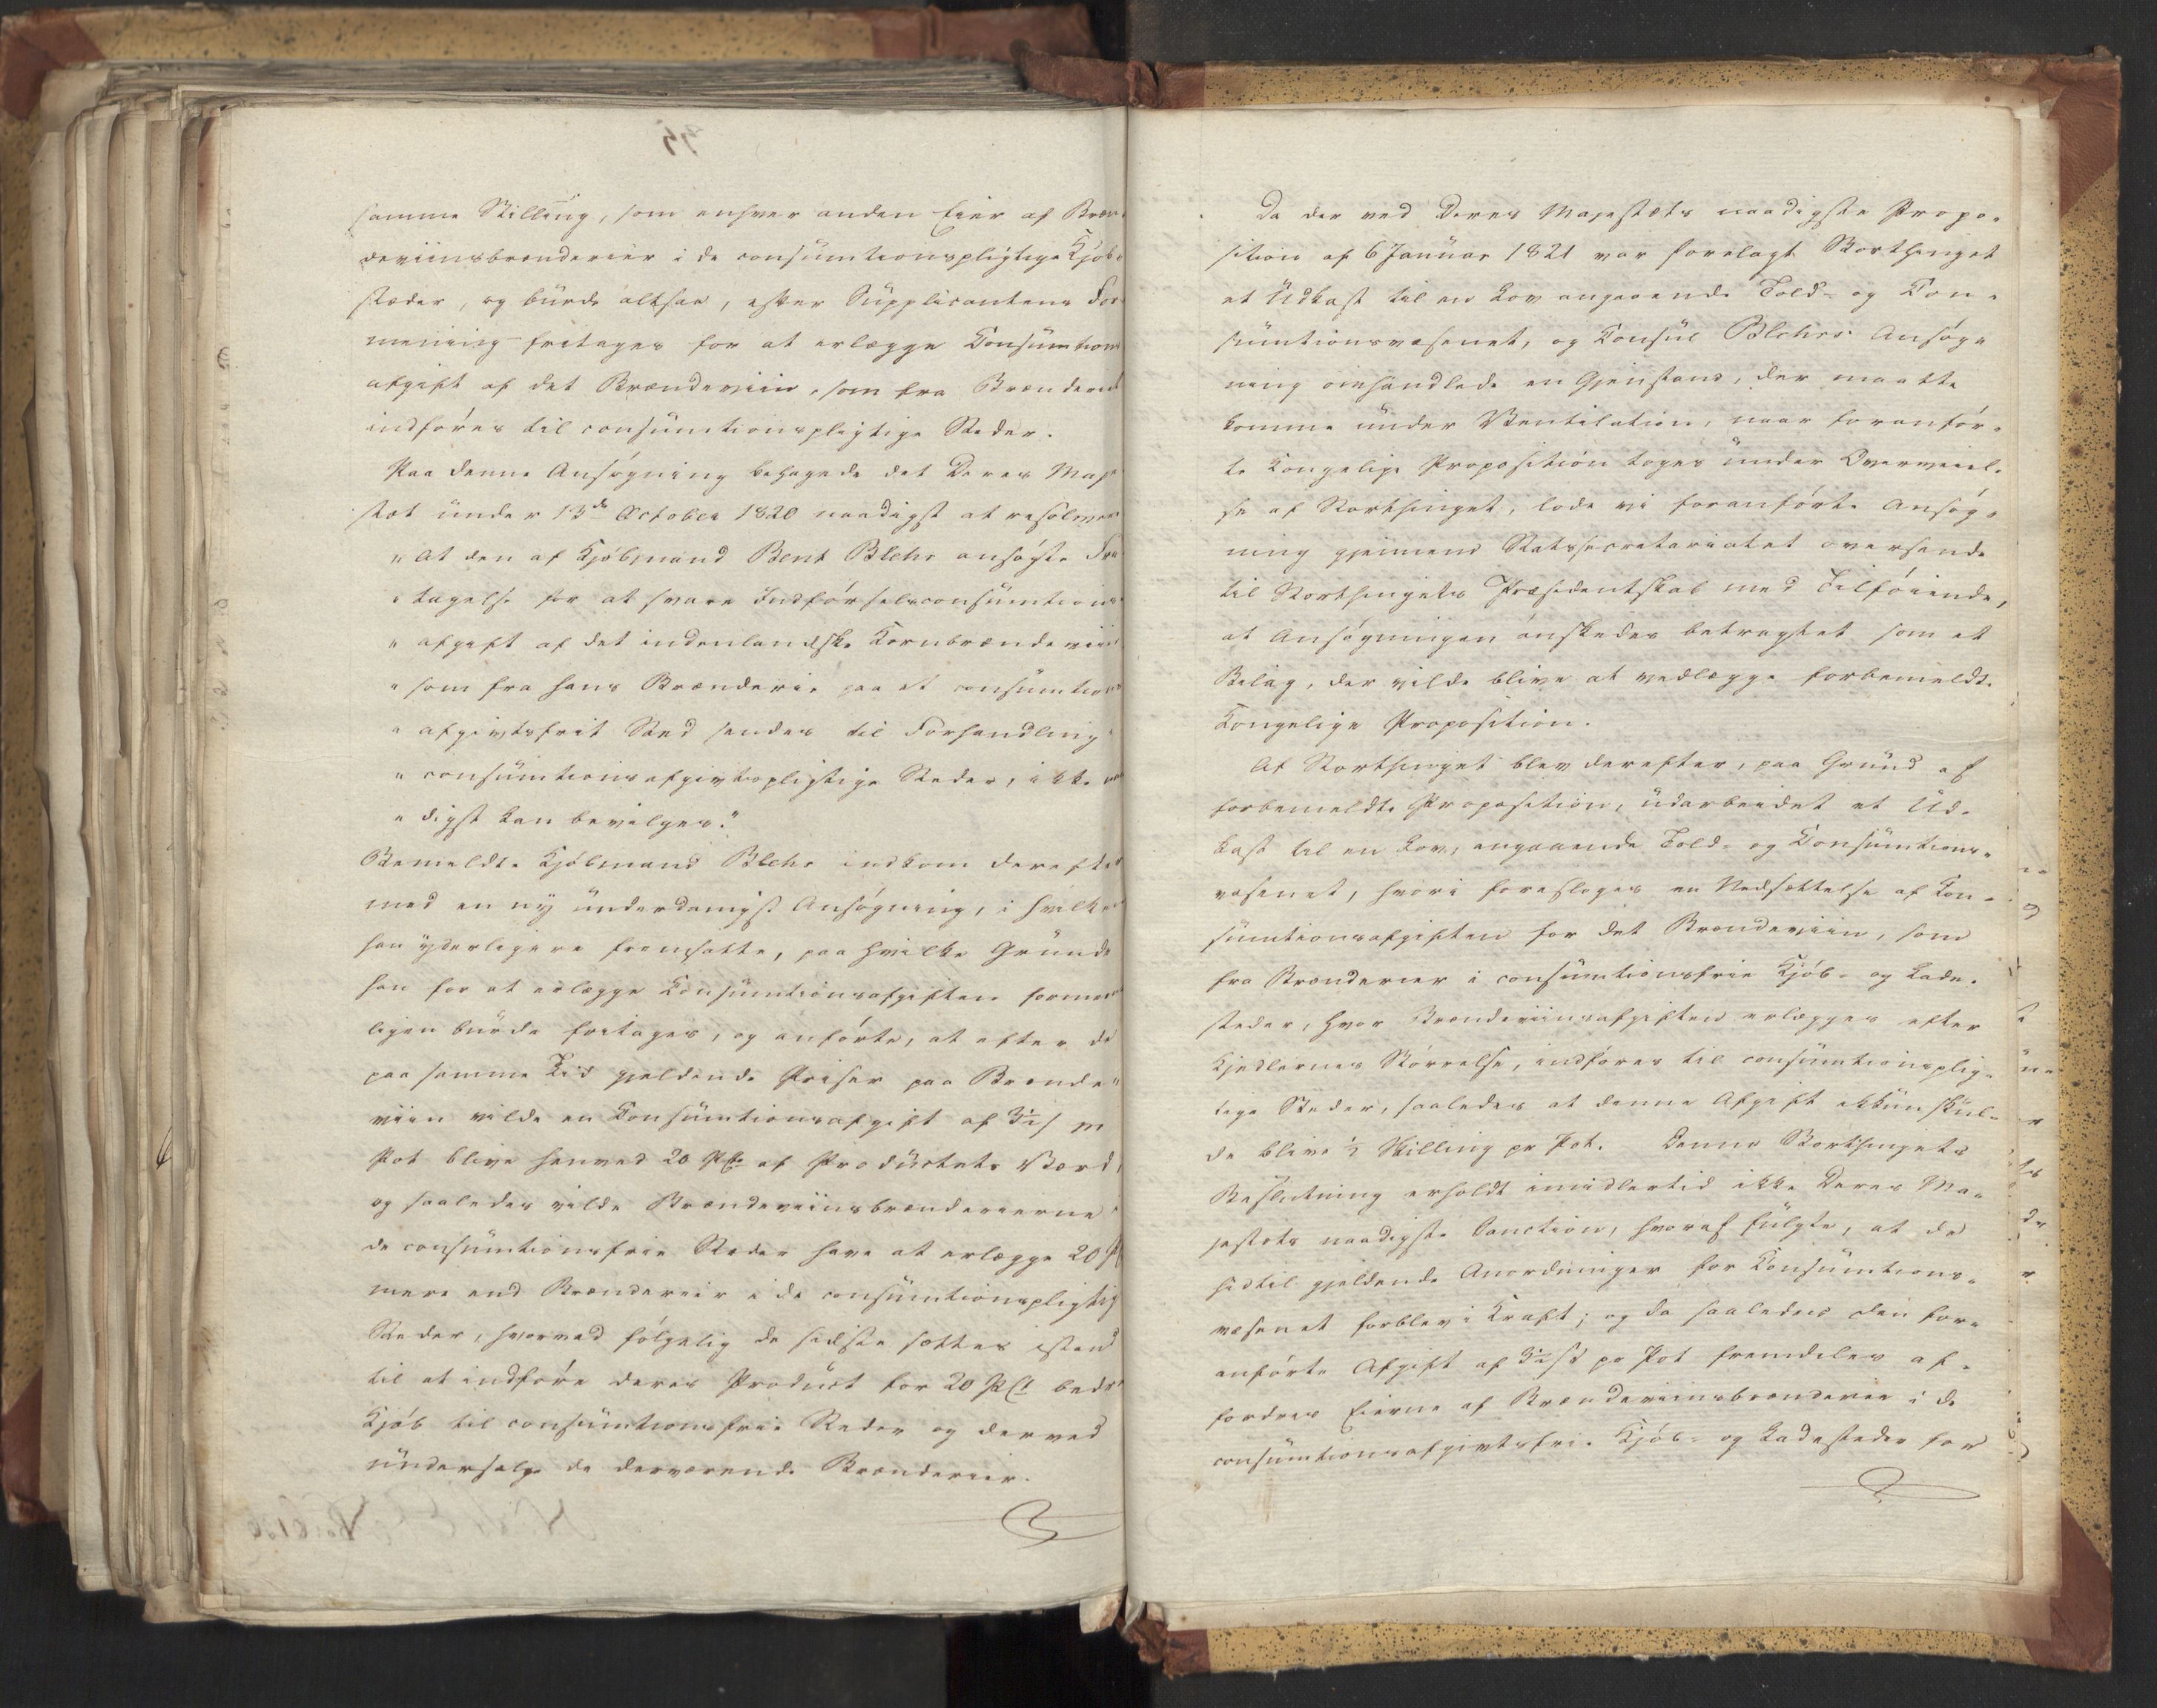 samme Stilling, som enhver anden Eier af Bræn-
deviinsbrænderier i de consumtionspligtige Kjøb-
stæder, og burde altsaa, efter Supplicantens For-
mening fritages for at erlægge Consumtions
afgift af det Brændeviin, som fra Brænderiet
indføres til consumtionspligtige Steder.
Paa denne Ansøgning behagede det Deres Maje
stæt under 13de October 1820 naadigst at resolvere
"At den af Kjøbmand Bent Blehr ansøgte Fri
"tagelse for at svare Indførselsconsumtions
"afgift af det indenlandske Kornbrændeviin
"som fra hans Brænderie paa et consumtions
"afgivtsfrit Sted sendes til Forhandling i
"consumtionsafgivtspligtige Steder, ikke naa
"digst kan bevilges."
Bemeldte Kjøbmand Blehr indkom derefter
med en ny underdanigst Ansøgning, i hvilken
han yderligere fremsatte, paa hvilke Grunde
han for at erlægge Consumtionsafgiften formeent
ligen burde fritages, og anførte, at efter de
paa samme Tid gjeldende Priser paa Brænde-
viin vilde en Consumtionsafgift af 3½ s pr
Pot blive henved 20 PCt af Productets Værd,
og saaledes vilde Brændeviinsbrænderierne i
de consumtionsfrie Stæder have at erlægge 20 P
mere end Brænderier i de consumtionspligtig
Steder, hvorved følgelig de sidste sættes istand
til at indføre deres Product for 20 PCt bedre
Kjøb til consumtionsfrie Steder og derved
undersælge de derværende Brænderier.
Da der ved Deres Majestæts naadigste Propo-
sition af 6 Januar 1821 var forelagt Storthinget
et Udkast til en Lov angaaende Told- og Con-
sumtionsvæsenet, og Consul Blehrs Ansøg-
ning omhandlede en Gjenstand, der maatte
komme under Ventilation, naar foranfør-
te Kongelige Proposition toges under Overveiel-
se af Storthinget, lode vi foranførte Ansøg-
ning gjennem Statssecretariatet oversende
til Storthingets Præsidentskab med Tilføiende,
at Ansøgningen ønskedes betragtet som et
Bilag, der vilde blive at vedlægge forbemeldte
Kongelige Proposition.
Af Storthinget blev derefter, paa Grund af
forbemeldte Proposition, udarbeidet et Ud-
kast til en Lov, angaaende Told- og Consumtions-
væsenet, hvori foresloges en Nedsættelse af Con-
sumtionsafgiften for det Brændeviin, som
fra Brænderier i consumtionsfrie Kjøb- og Lade-
steder, hvor Brændeviinsafgiften erlægges efter
Kjedlernes Størrelse, indføres til consumtionsplig-
tige Steder, saaledes at denne Afgift ikkun skul-
de blive ½ Skilling pr Pot. Denne Storthingets
Beslutning erholdt imidlertid ikke Deres Ma-
jestæts naadigste Sanction, hvoraf fulgte, at de
hidtil gjeldende Anordninger for Consumtions-
væsenet forblev i Kraft; og da saaledes den for-
anførte Afgift af 3½ sk pr Pot fremdeles af-
fordres Eierne af Brændeviinsbrænderier i de
consumtionsafgivtsfrie Kjøb- og Ladesteder for